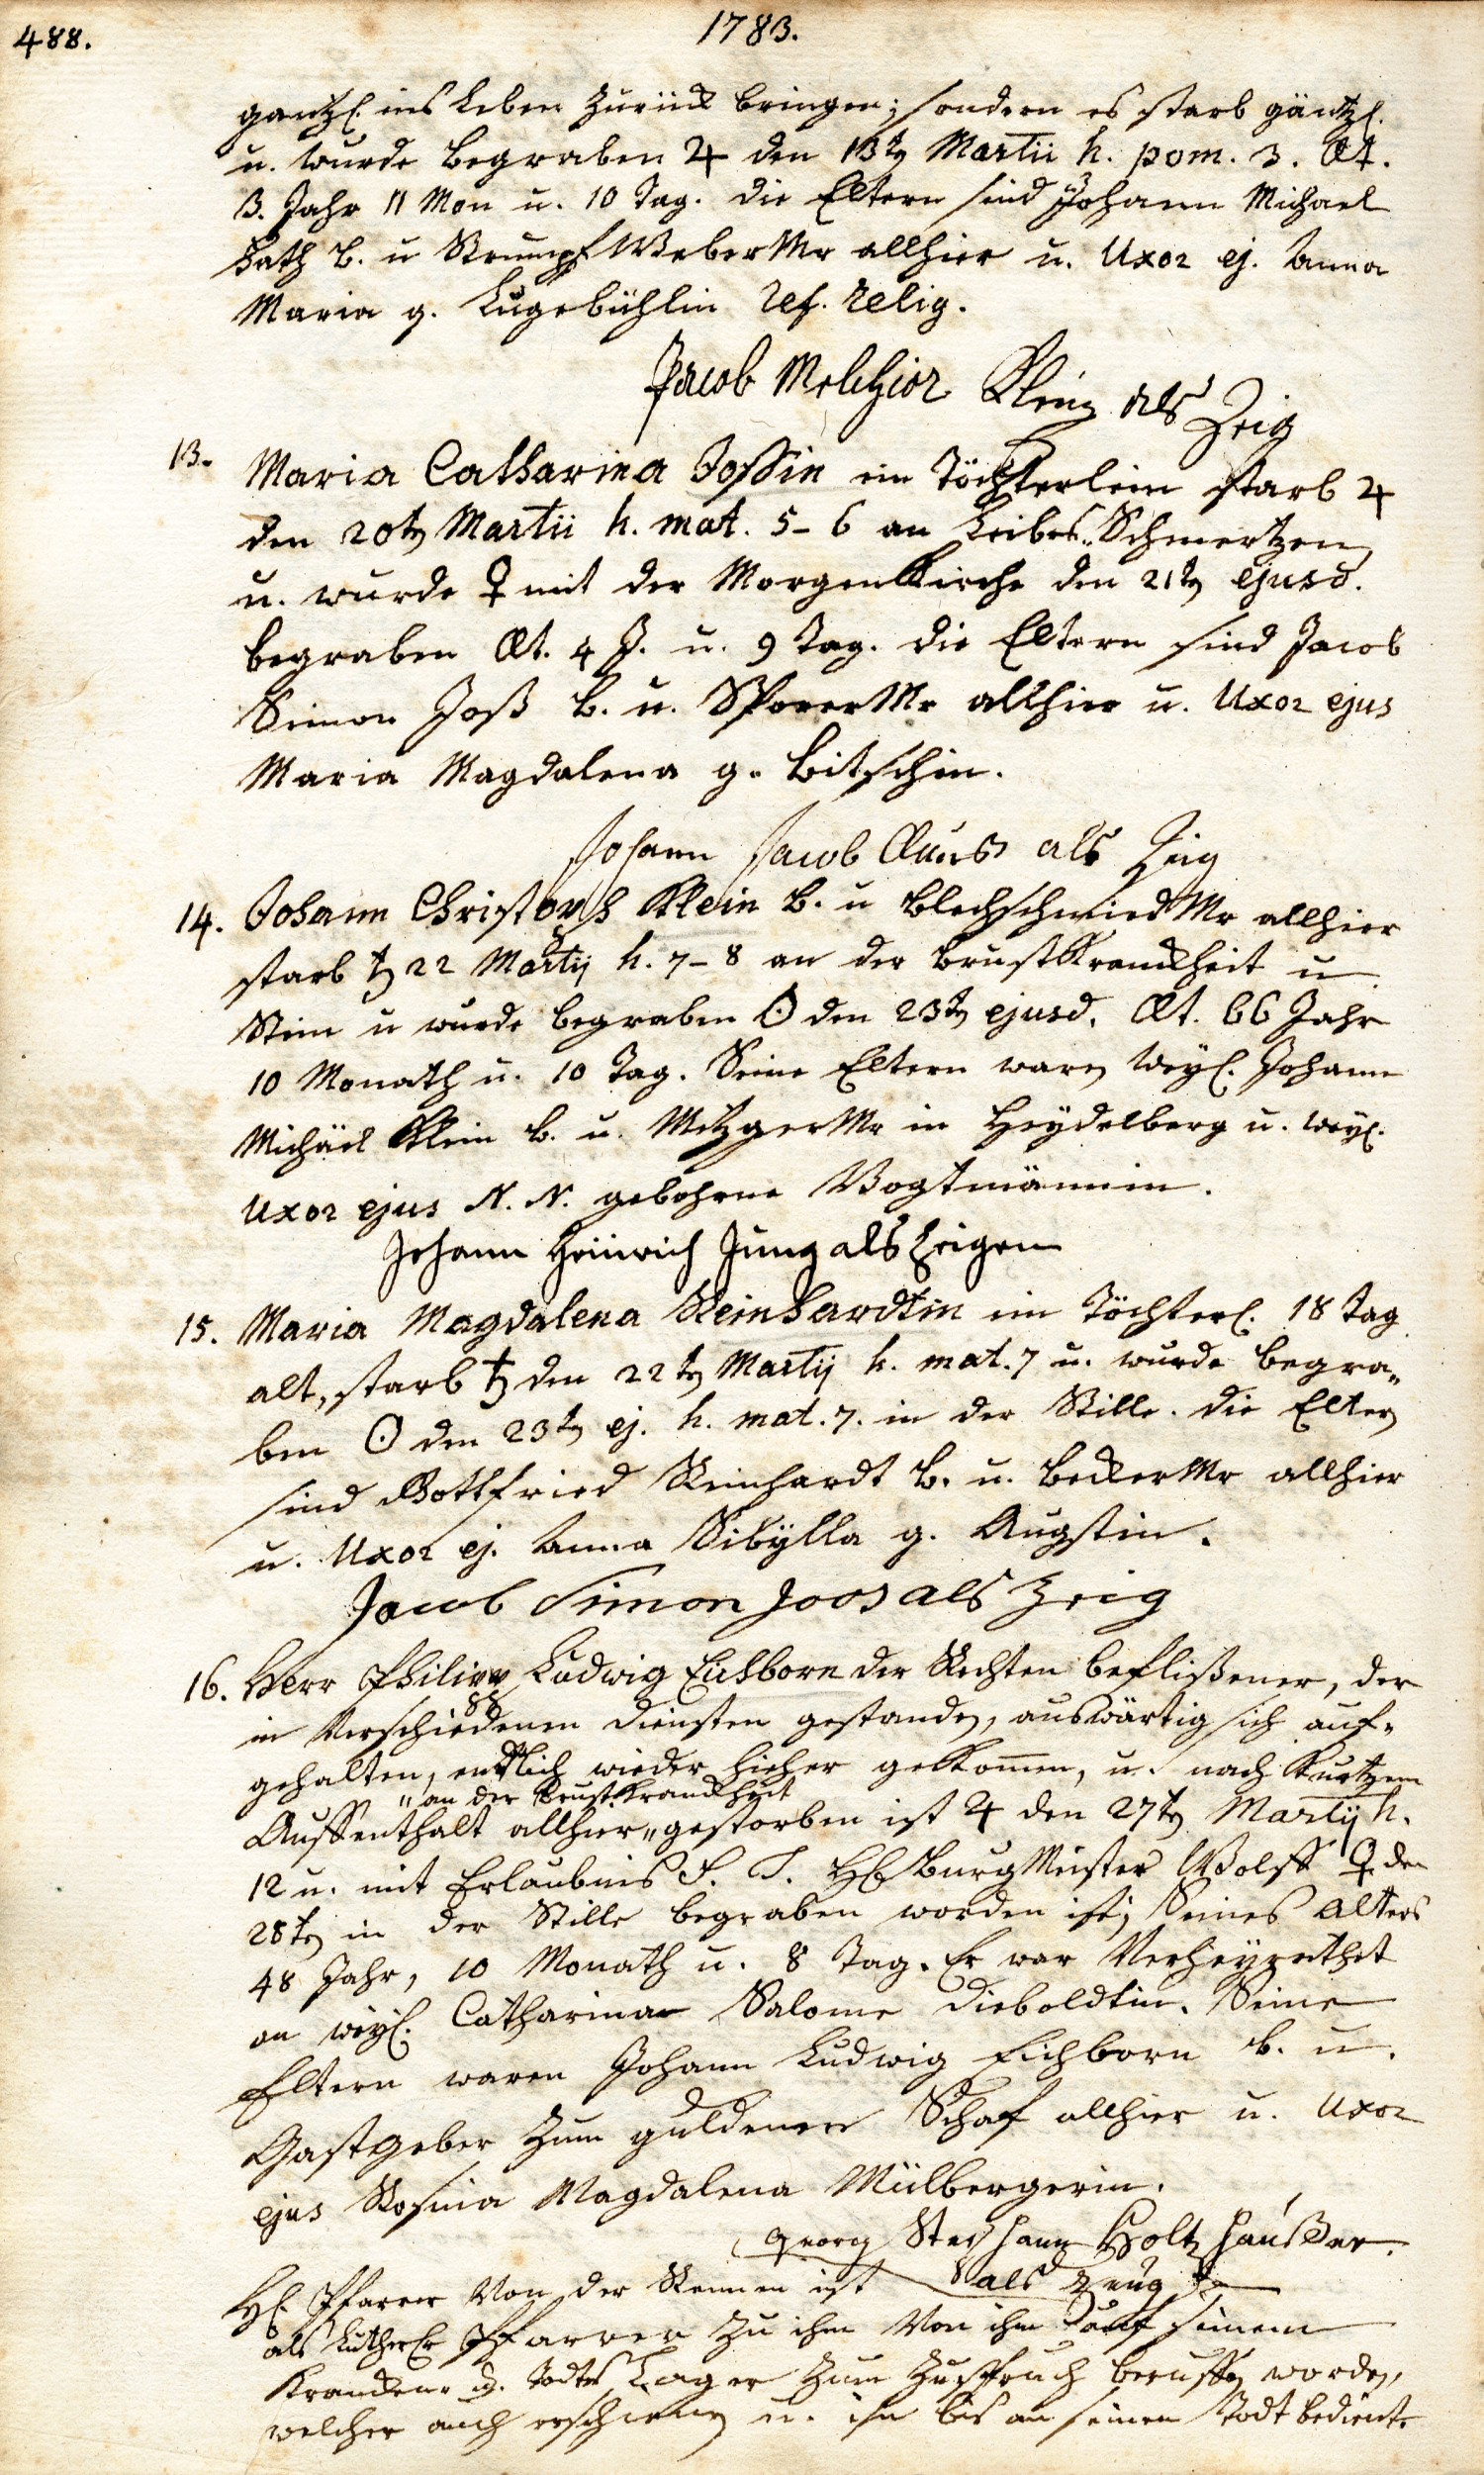 488.
1783.
gantzl. ins Leben zurück bringen; sondern es starb gäntzl.
u. wurde begraben ♃ den 13ten Martii h. pom. 3. Æt.
3. Jahr 11 Mon u. 10 Tag. die Eltern sind Johann Michael
Bath B. u Strumpf Weber Mr allhier u. Uxor ej. Anna
Maria g. Lugebühlin ref. relig.
Jacob Melchior als Zeig
13. Maria Catharina Joßin ein Töchterlein starb ♃
den 20ten Martii h. mat. 5-6 an Leibes-Schmertzen
u. wurde ♀ mit der Morgenkirche den 21ten ejusd.
begraben Æt. 4 J. u. 9 Tag. die Eltern sind Jacob
Simon Joß B. u. Sporer Mr allhier u. Uxor ejus
Maria Magdalena g. Bitschin.
Johann Jacob als Zeig
14. Johann Christoph Klein B. u Blechschmied Mr allhier
starb ♄ 22 Martij h. 7-8 an der Brustkranckheit u
Stein u wurde begraben ☉ den 23ten ejusd. Æt. 66 Jahr
10 Monath u. 10 Tag. Seine Eltern waren weyl. Johann
Michäel Klein B. u. Metzger Mr in Heydelberg u. weyl.
Uxor ejus N. N. gebohrne Vogtmännin.
Johann Heinrich Jung als Zeigen
15. Maria Magdalena Reinhardtin ein Töchterl. 18 Tag
alt, starb ♄ den 22ten Martij h. mat. 7 u. wurde begra„
ben ☉ den 23ten ej. h. mat. 7. in der Stille. die Eltern
sind Gottfried Reinhardt B. u. Becker Mr allhier
u. Uxor ej. Anna Sibÿlla g. Augstin.
Jacob Simon Joos als Zeig
16. Herr Philipp Ludwig Eichborn der Rechten beflißener, der
in verschiedenen Diensten gestanden, auswärtig sich auf-
gehalten, endtlich wieder hieher gekkom̄en, u. nach kurtzem
„an der Brustkranckheit
Auffenthalt allhier „ gestorben ist ♃ den 27ten Martij h.
12 u. mit Erlaubnis S. T. H. BurgMeister Wolff ♀ den
28ten in der Stille begraben worden ist; Seines Alters
48 Jahr, 10 Monath u. 8 Tag. Er war Verheyrathet
an weyl. Catharina Salome Dieboldtin. Seine
Eltern waren Johann Ludwig Eichborn B. u.
Gastgeber zum guldenen Schaf allhier u. Uxor
ejus Rosina Magdalena Mülbergerin.
Georg Stephann Holtzhaußer
als Zeug
H. Pfarrer Von der Rennen ist
als Pfarrer zu ihm Von ihm auf seinem
Krancken- u. Todtes Lager zum Zuspruch beruffen worden,
welcher auch erschienen u. ihn bis an seinen Todt bediente